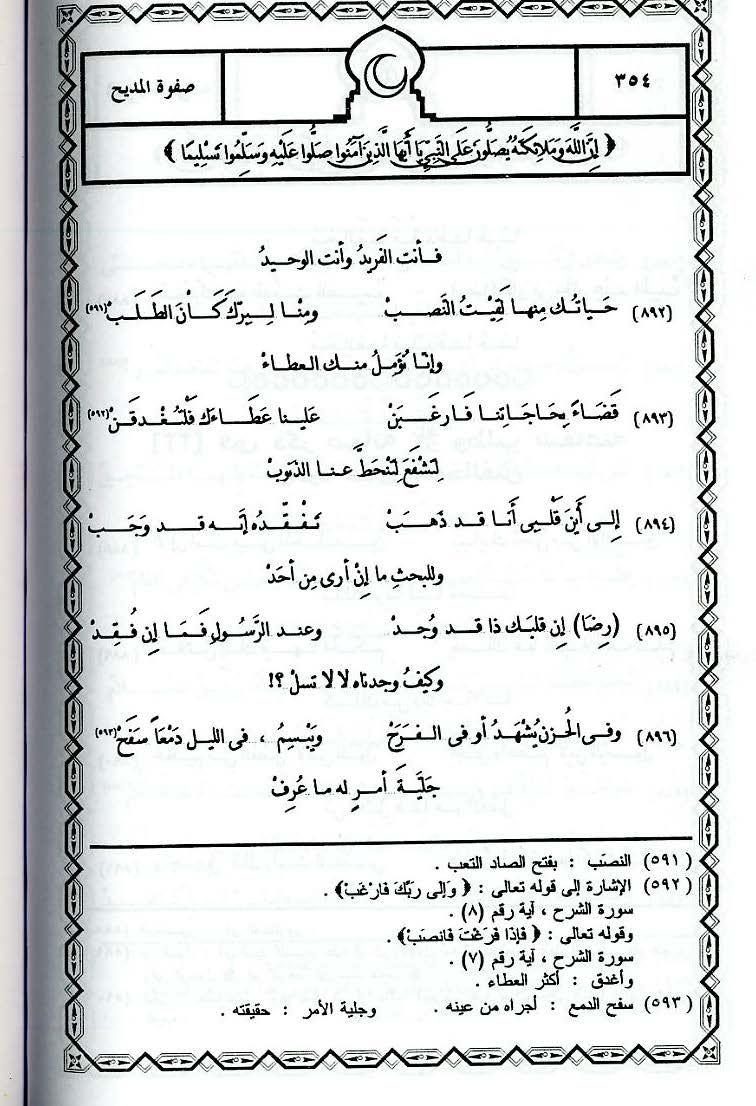 ٣٥٤
صفوة المديح
﴿ إِنَّ اللَّهَ وَمَلَائِكَتَهُ يُصَلُّونَ عَلَى النَّبِيِّ يَا أَيُّهَا الَّذِينَ آمَنُوا صَلُّوا عَلَيْهِ وَسَلِّمُوا تَسْلِيمًا ﴾
فأنت الفَرِيدُ وأنت الوحيدُ
(٨٩٢) حَيَاتُك مِنها لَقِيْتَ النَصبْ ومِنْا لِبِرِّكَ كَانَ الطَلَبْ (٥٩١)
وإنّا نُؤَمِلُ منك العطاءْ
(٨٩٣) قَضَاءً بِحَاجَاتِنا فَارغَبَنْ علينا عَطَاءَك فَلْتُغْدِقَنْ (٥٩٢)
لِتَشْفَعَ لِتَنْحَطَّ عنا الذنوبْ
(٨٩٤) إِلى أَينَ قَلْبِي أَنا قد ذهَبْ تفَقّدُه إنّه قد وَجَبْ
وللبحثِ ما إنْ أرى مِن أحَدْ
(٨٩٥) (رِضَا) إن قلبَك ذا قد وُجدْ وعند الرَّسُولِ فَمَا إن فُقِدْ
وكيفُ وجدناه لا لا تسلْ ؟!
(٨٩٦) وفى الحُزنِ يُشْهَدُ أو فى الفَرَحْ ويَبْسِمُ ، فى الليل دَمْعَاً سَفَحْ (٥٩٣)
جَلِيَّةَ أمرٍ له ما عُرِفْ
(٥٩١) النصب : بفتح الصاد التعب .
(٥٩٢) الإشارة إلى قوله تعالى : ﴿ وَإِلَى رَبِّكَ فَارْغَبْ ﴾ .
سورة الشرح ، آية رقم (٨) .
وقوله تعالى : ﴿ فَإِذَا فَرَغْتَ فَانصَبْ ﴾ .
سورة الشرح ، آية رقم (٧) .
وأغدق : أكثر العطاء .
(٥٩٣) سفح الدمع : أجراه من عينه . وجلية الأمر : حقيقته .